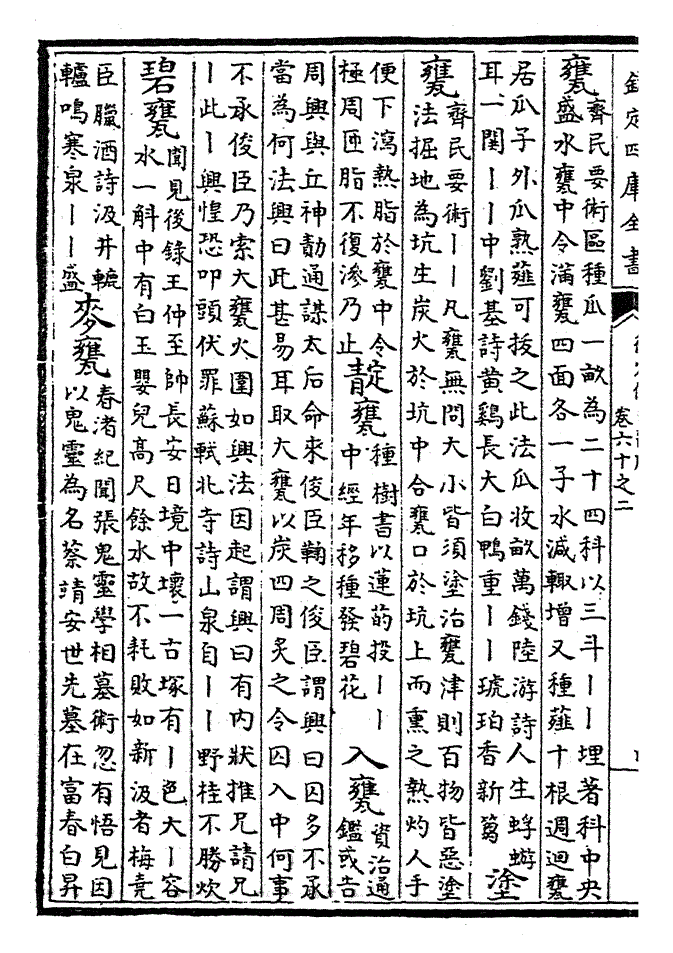 欽定四庫全書
卷六十之二
甕
齊民要術區種瓜一畝為二十四科以三斗丨丨埋著科中央
盛水甕中令滿甕四面各一子水減輙增又種薤十根週迴甕
居瓜子外瓜熟薤可拔之此法瓜收畝萬錢陸游詩人生蜉蝣
耳一閧丨丨中劉基詩黄鷄長大白鴨重丨丨琥珀香新蒭
塗
甕
齊民要術丨丨凡甕無問大小皆須塗治甕津則百物皆惡塗
法掘地為坑生炭火於坑中合甕口於坑上而熏之熱灼人手
便下瀉熱脂於甕中令
極周匝脂不復滲乃止
靛甕
種樹書以蓮菂投丨丨
中經年移種發碧花
入甕
資治通
鑑或告
周興與丘神勣通謀太后命來俊臣鞠之俊臣謂興曰囚多不承
當為何法興曰此甚易耳取大甕以炭四周炙之令囚入中何事
不承俊臣乃索大甕火圍如興法因起謂興曰有内狀推兄請兄
丨此丨興惶恐叩頭伏罪蘇軾北寺詩山泉自丨丨野桂不勝炊
碧甕
聞見後錄王仲至帥長安日境中壞一古塚有丨色大丨容
水一斛中有白玉嬰兒高尺餘水故不耗敗如新汲者梅堯
臣臘酒詩汲井轆
轤鳴寒泉丨丨盛
麥甕
春渚紀聞張鬼靈學相墓術忽有悟見因
以鬼靈為名蔡靖安世先墓在富春白昇